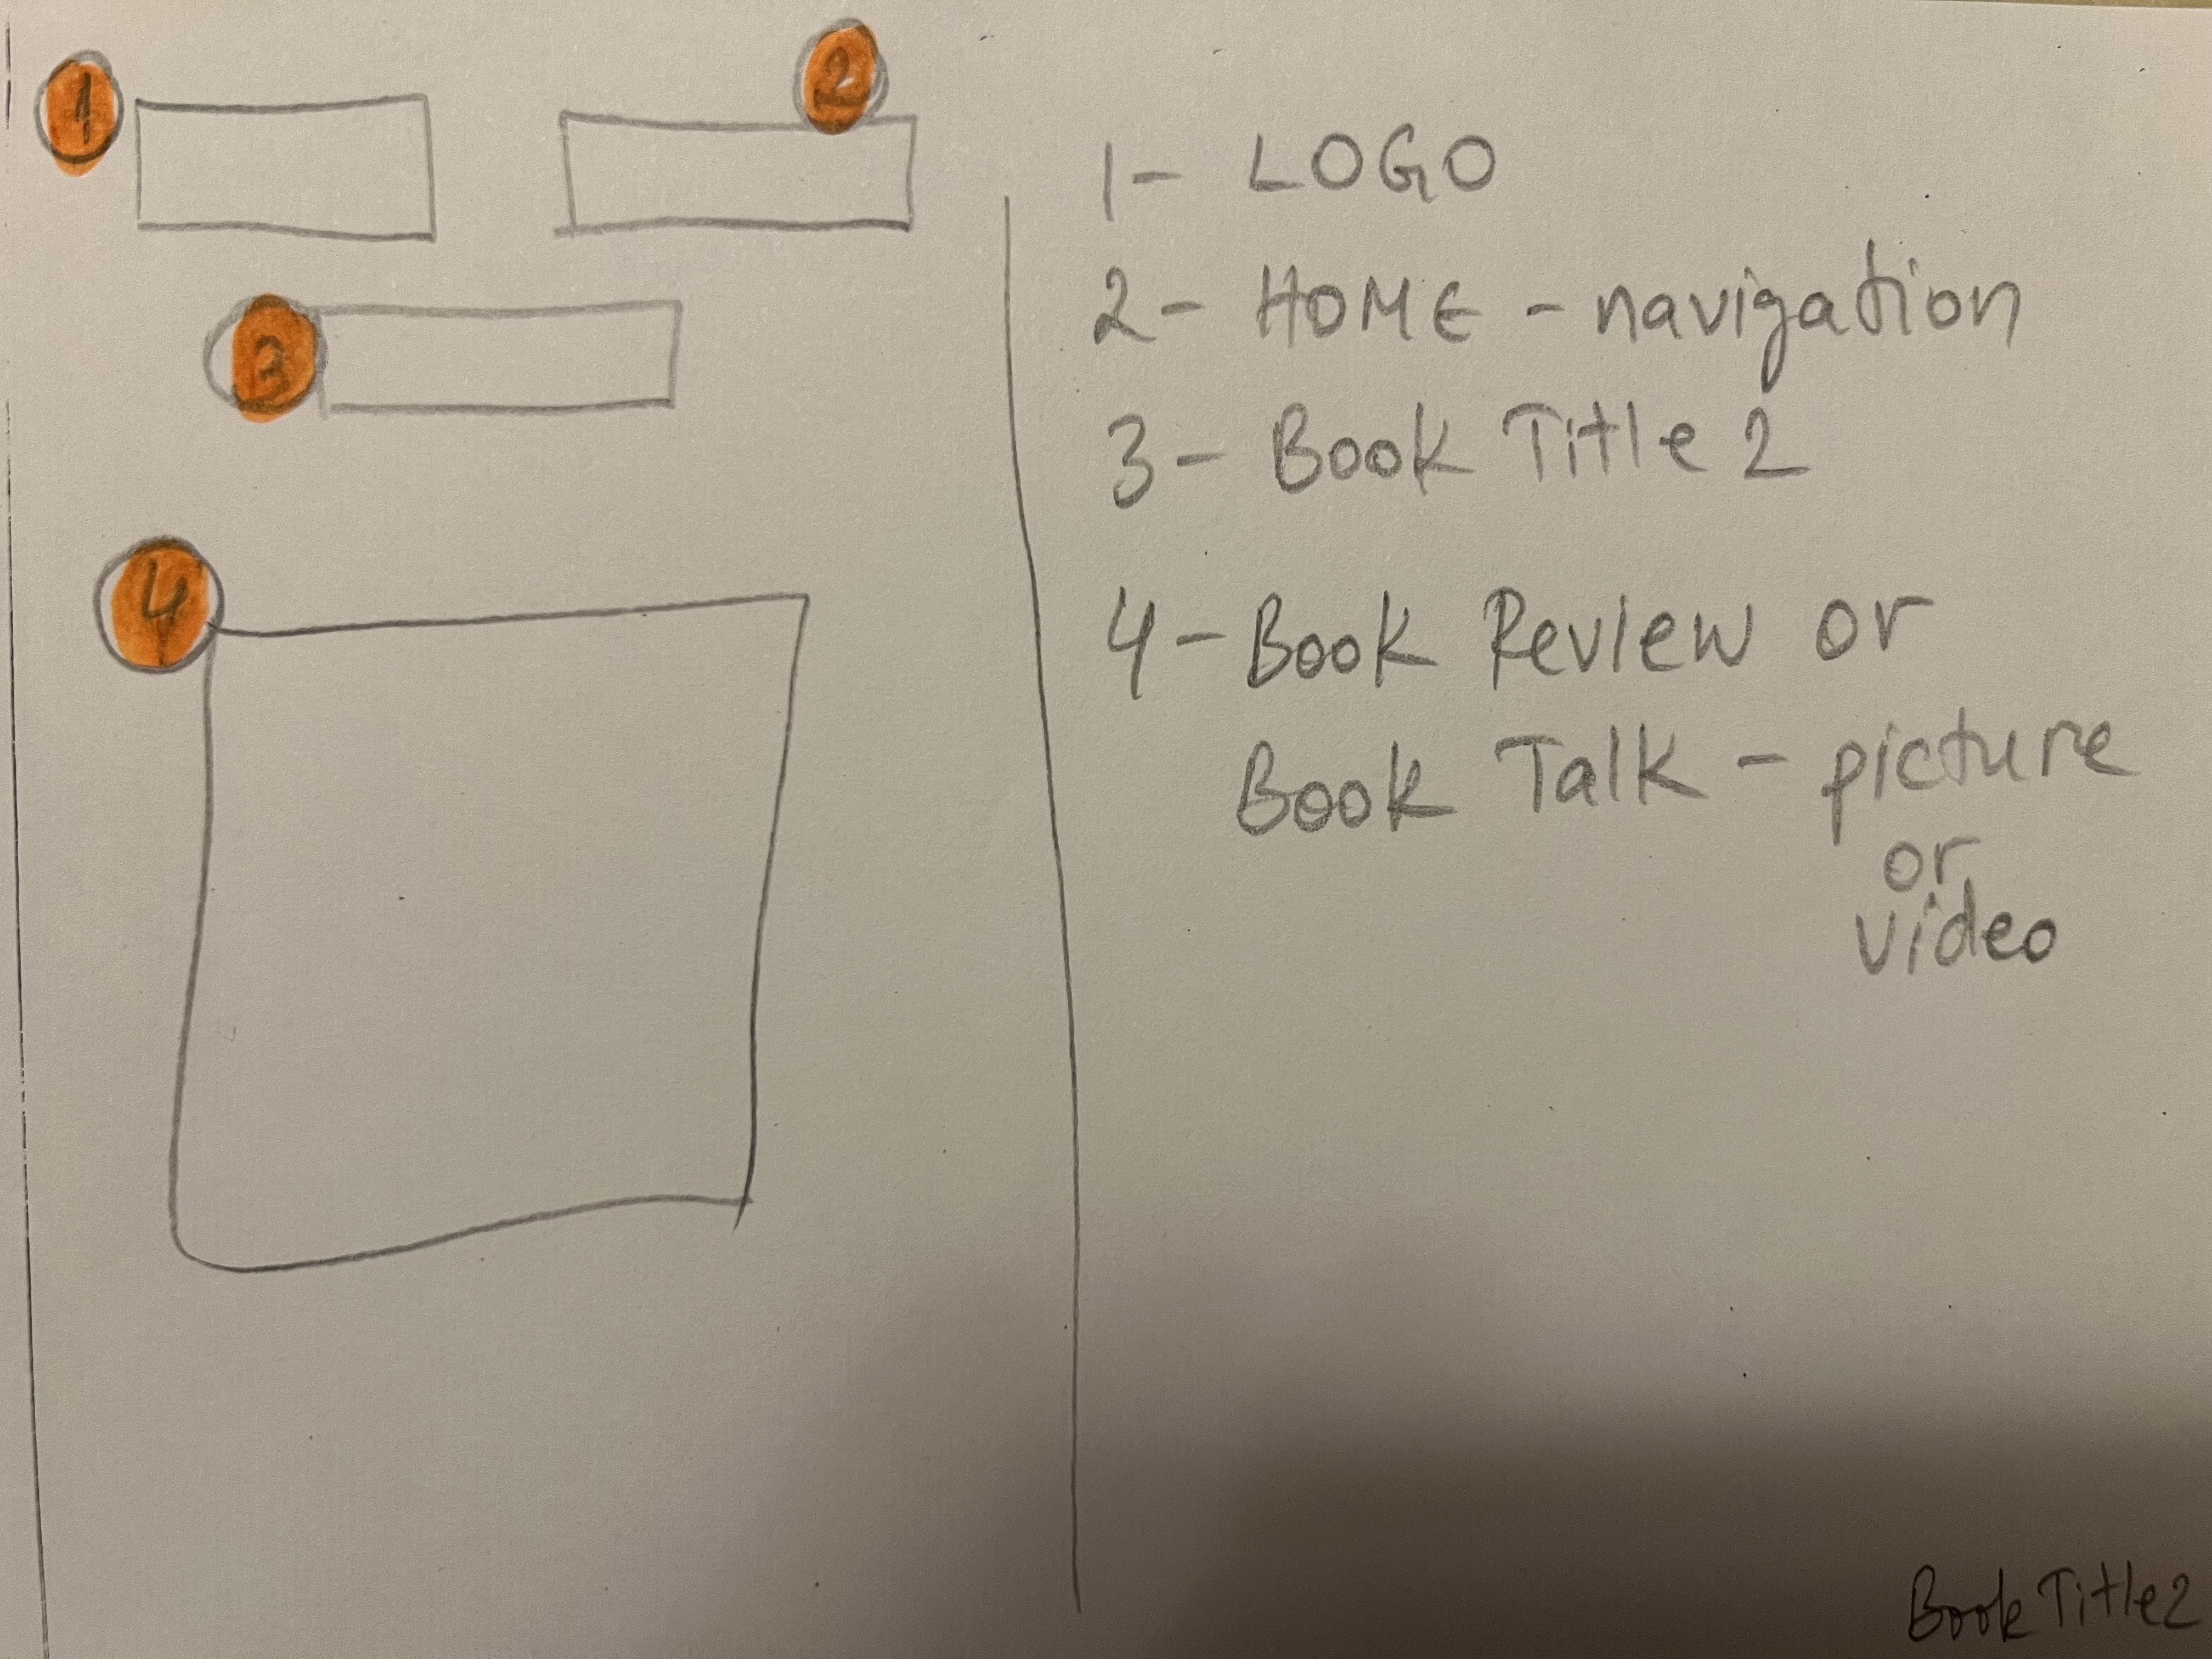 1
2
3
4
1- LOGO
2- HOME - navigation
3- Book Title 2
4- Book Review or
Book Talk - picture
or
video
Book Title 2